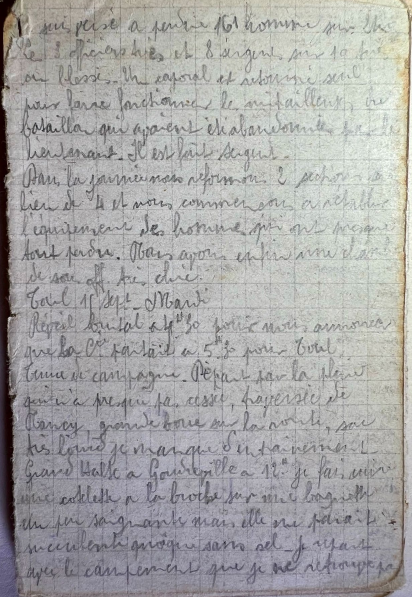 perdu 161 hommes sur
8 officiers tués et 8 sergents sur 10 tués
ou blessés. Un caporal est retourné seul
pour faire fonctionner les mitrailleuses du
bataillon qui avaient été abandonnées par le
lieutenant. Il est fait sergent.
Dans la journée nous reformons 2 sections au
lieu de 4 et nous commençons à rétablir
l'équipement des hommes qui ont presque
tout perdu. Nous avons enfin une
de sous off très chic.
Toul 15 Sept Mardi
Réveil brutal à 4h30 pour nous annoncer
que la Cie partait à 5h30 pour Toul
Tenue de campagne. Départ par la pluie
qui n'a presque pas cessé, traversée de
Nancy, grande boue sur la route, sac
très lourd je manque d'entrainement
Grand Halte à Gondreville à 12h je fais cuire
une cotelette à la broche sur une baguette
un peu saignante mais elle me parait
succulente quoique sans sel. Je repart
avec le campement que je ne